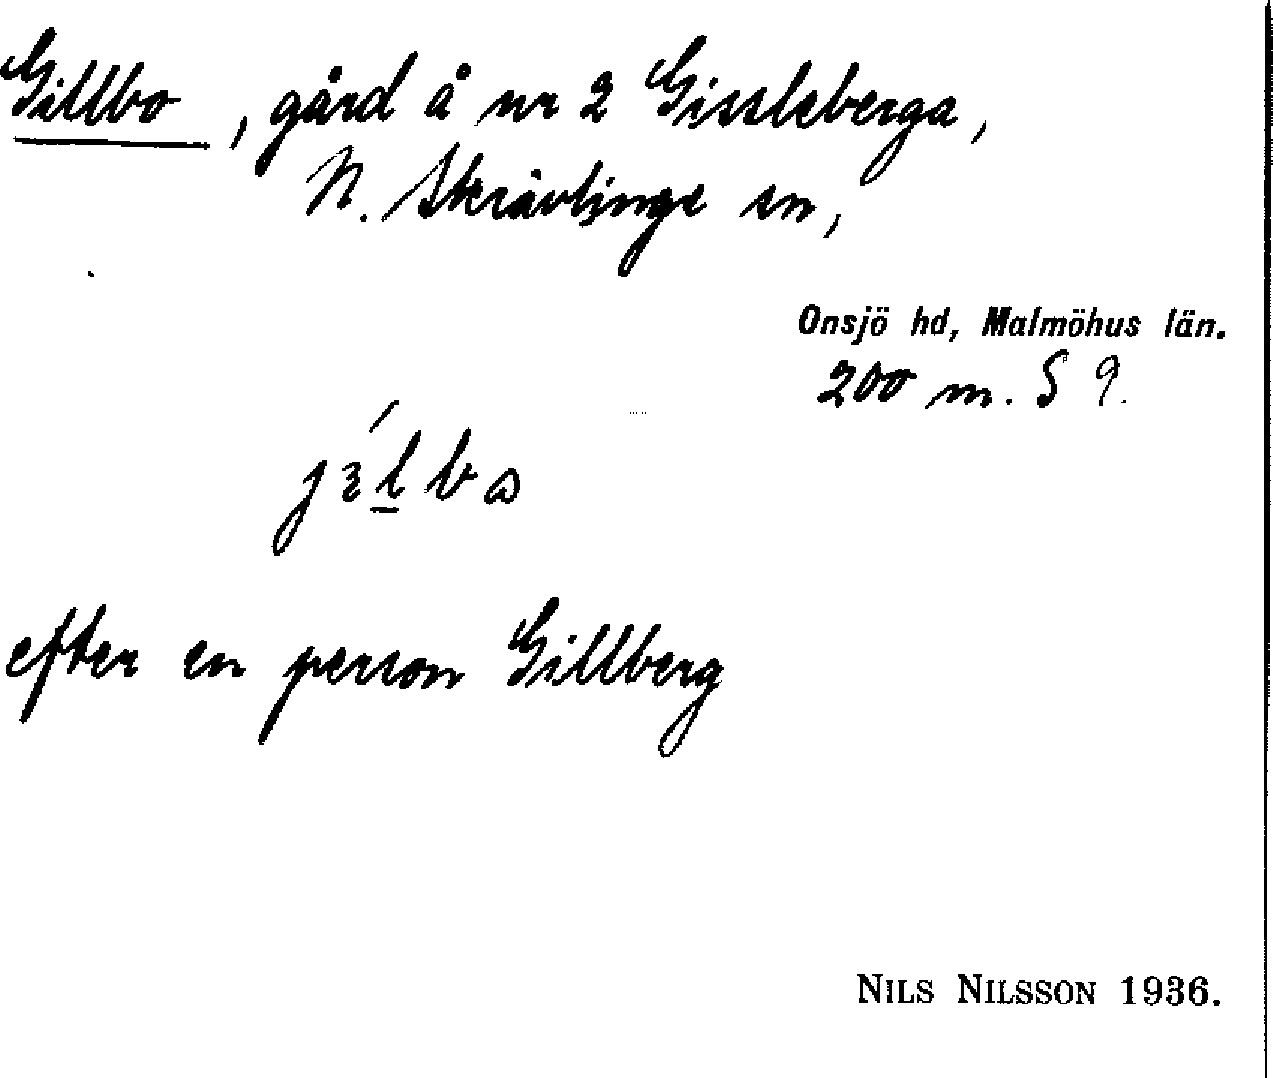 Gillbo, gård å nr 2 Gissleberga,
N. Skrävlinge sn,
Onsjö hd, Malmöhus län.
200 m. S 9.
efter en person Gillberg
NILS NILSSON 1936.